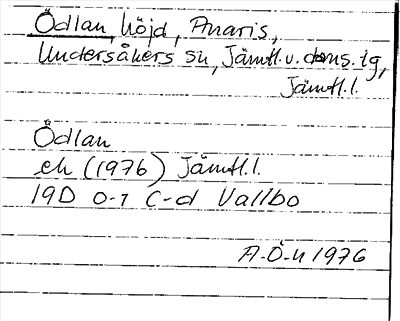 Ödlan, höjd, Anaris,
Undersåkers sn, Jämtl. v. doms. tg,
Jämtl. l.
Ödlan
ek (1976) Jämtl. l.
19D 0-1 c-d Vallbo
A-Ö-n 1976